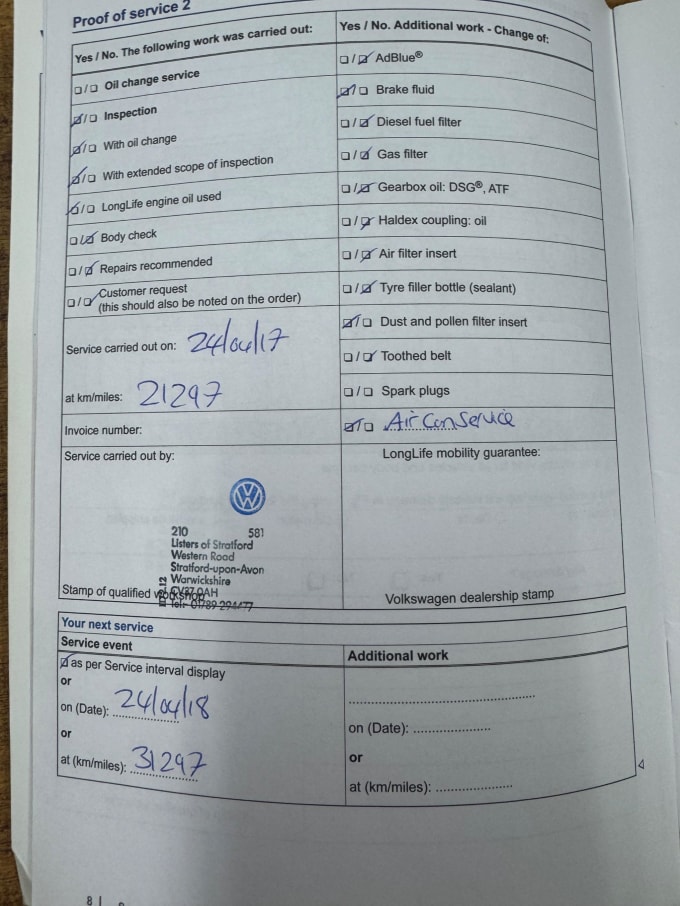 Proof of service 2
Yes / No. The following work was carried out:
☐/☐ Oil change service
☑/☐ Inspection
☑/☐ With oil change
☑/☐ With extended scope of inspection
☑/☐ LongLife engine oil used
☐/☑ Body check
☐/☑ Repairs recommended
☐/☑ Customer request
(this should also be noted on the order)
Service carried out on: 24/04/17
at km/miles: 21297
Invoice number:
Service carried out by:
VW
210 581
Listers of Stratford
Western Road
Stratford-upon-Avon
Warwickshire
CV37 0AH
Tel: 01789 294477
Stamp of qualified workshop
Yes / No. Additional work - Change of:
☐/☑ AdBlue®
☑/☐ Brake fluid
☐/☑ Diesel fuel filter
☐/☑ Gas filter
☐/☑ Gearbox oil: DSG®, ATF
☐/☑ Haldex coupling: oil
☐/☑ Air filter insert
☐/☑ Tyre filler bottle (sealant)
☑/☐ Dust and pollen filter insert
☐/☑ Toothed belt
☐/☐ Spark plugs
☑/☐ Air Con Service
LongLife mobility guarantee:
Volkswagen dealership stamp
Your next service
Service event
☑ as per Service interval display
or
on (Date): 24/04/18
or
at (km/miles): 31297
Additional work
on (Date):
or
at (km/miles):
8